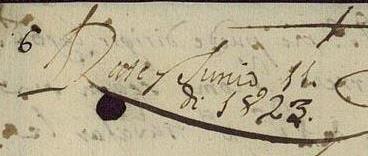 6
Rose, Junio 11.
di 1823.